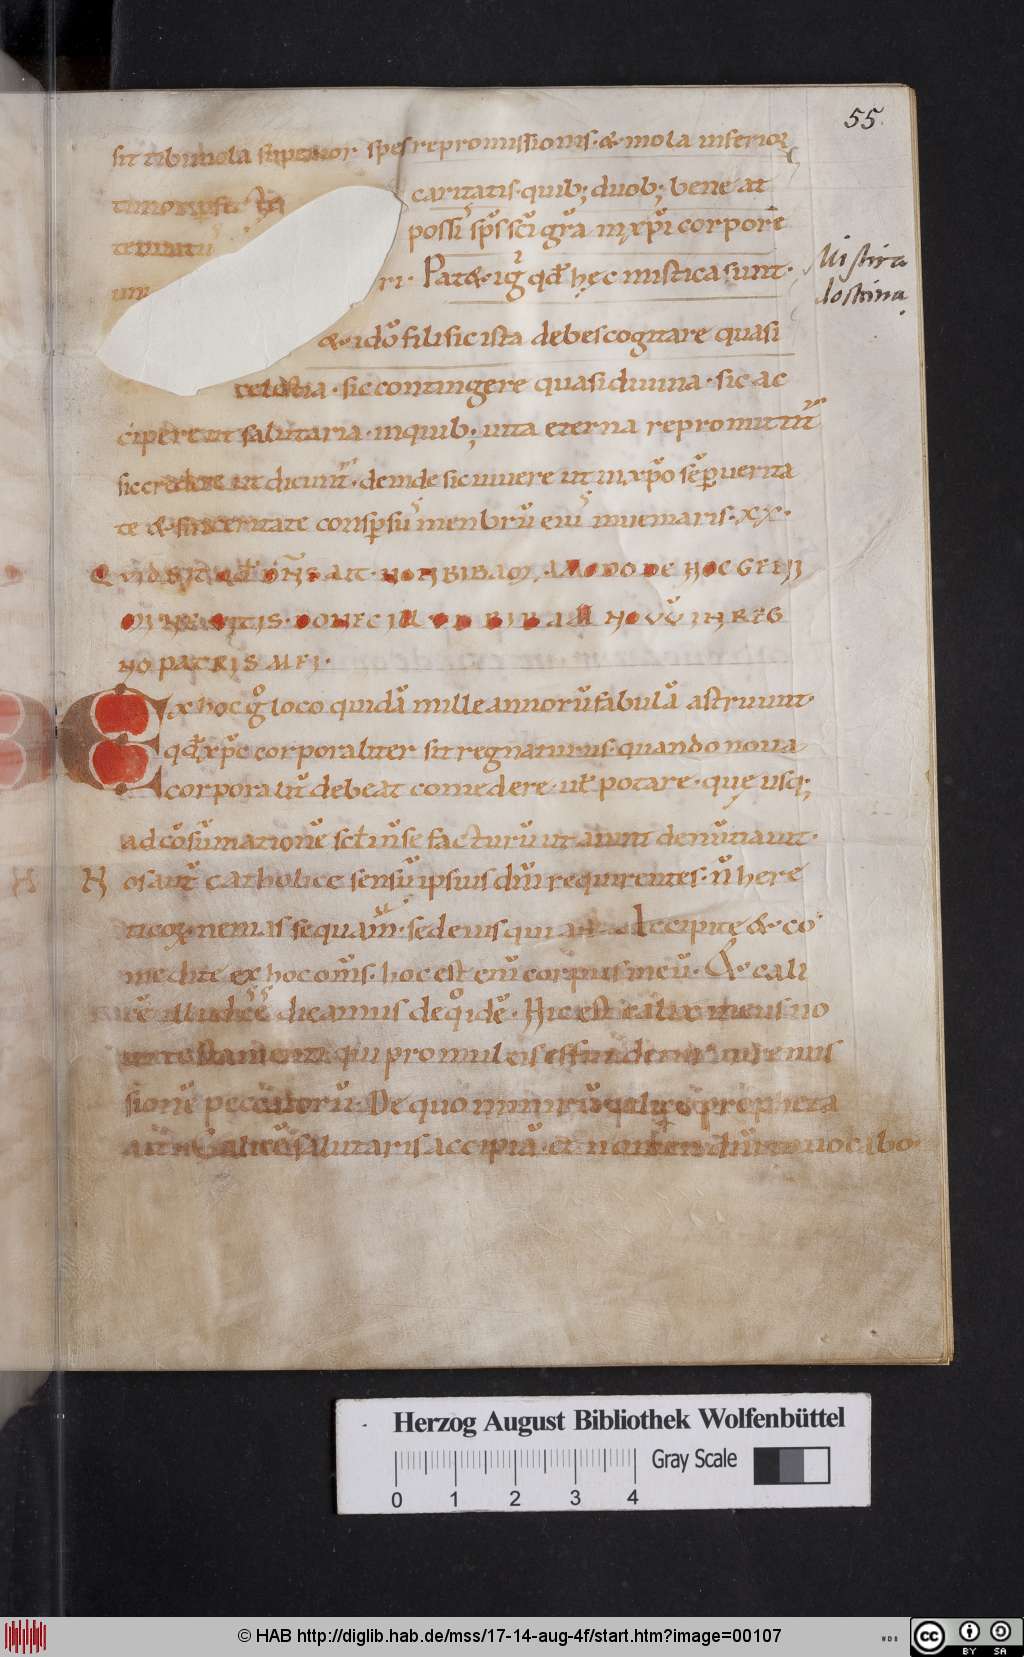 55
sit tibi mola superior spes repromissionis · & mola inferior
timor
caritatis · quib; duob; bene at
possī sp̄s sc̄i gr̄a in xp̄i corpore
ri · Pat& · igͥ qđ hęc mistica sunt ·
Mistica
doctrina
& · ido filii sic ista debes cogitare quasi
celestia · sic contingere quasi diuina · sic ac
cipere ut salutaria · in quib; uita eterna repromittit᷑
sic credere ut dicunt᷑ · deinde sic uiuere ut in xp̄o sēp uerita
te & sinceritate conspsū menbrū eiū inueniaris · XX ·
QVID SIT QĐ DN̄S AIT · NON BIBAM AMODO DE HOC GENI
MINE VITIS · DONEC ILLUD BIBAM NOVŪ IN REG
NO PATRIS MEI ·
Ex hoc gͦ loco quidā mille annorū fabulā astruunt ·
qđ xp̄c corporaliter sit regnaturus · quando noua
corpora uī debeat comedere · uł potare · quę usq;
ad cōsūmationē sc̄li n̄se facturū ut aiunt denūtiant ·
Nos aut̄ catholice sensū ipsius dn̄i requirentes · n̄ here
ticoꝝ nenias sequam̄ · sed eius qui ait Accipite & co
medite ex hoc om̄s · hoc est enī corpus meū · & cali
cē illud dicamus de qͦ idē · Hic est calix meus no
ui testamenti qui pro multis effundetur in remis
sionē peccatorū · De quo nimirū calice propheta
ait · Calicē salutaris accipiā · et nomen dn̄i inuocabo ·
Herzog August Bibliothek Wolfenbüttel
Gray Scale
0 1 2 3 4
© HAB http://diglib.hab.de/mss/17-14-aug-4f/start.htm?image=00107
WDB
cc BY SA